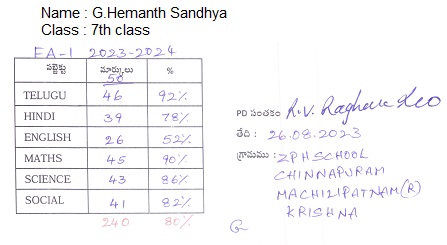 Name : G.Hemanth Sandhya
Class : 7th class
FA-1 2023-2024
సబ్జెక్టు మార్కులు %
50
TELUGU 46 92%
HINDI 39 78%
ENGLISH 26 52%
MATHS 45 90%
SCIENCE 43 86%
SOCIAL 41 82%
240 80%
PD సంతకం R.V. Raghava Rao
తేది : 26.08.2023
గ్రామము : ZPHSCHOOL
CHINNAPURAM
MACHILIPATNAM (R)
KRISHNA
G